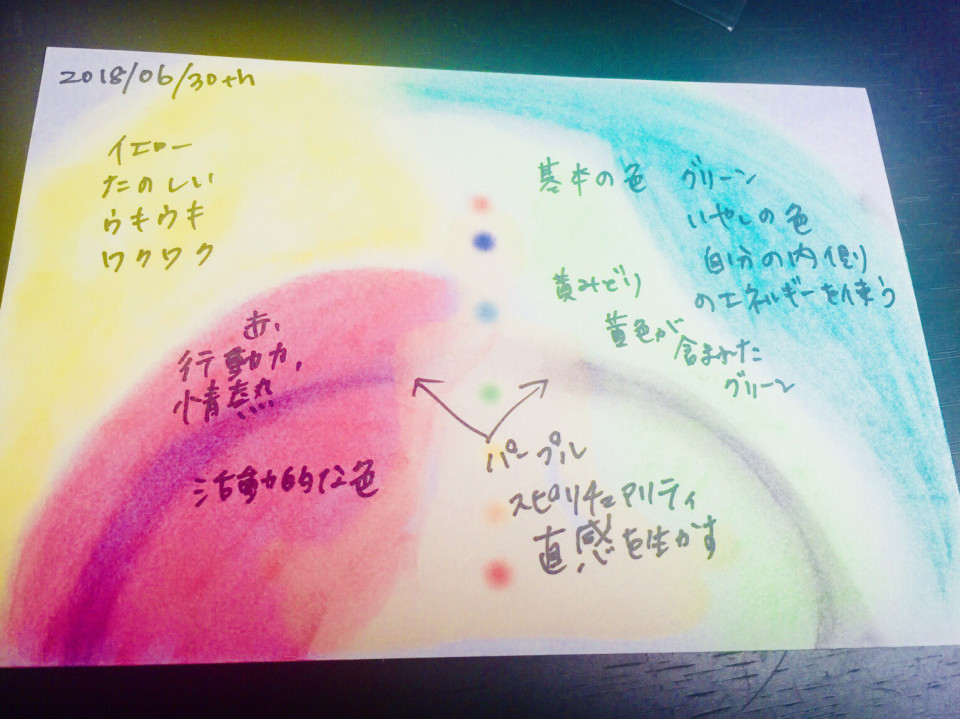 2018/06/30th
イエロー
たのしい
ウキウキ
ワクワク
赤、
行動力、
情熱
活動的な色
基本の色 グリーン
いやしの色
自分の内側
のエネルギーを使う
黄みどり
黄色が
含まれた
グリーン
パープル
スピリチュアリティ
直感を生かす